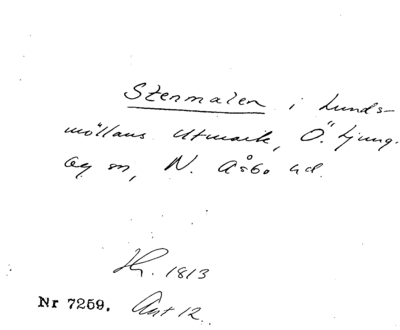 Stenmalen i Lunds-
möllans Utmark, Ö. Ljung-
by sn, N. Åsbo hd.
1813
Nr 7259. Akt 12.